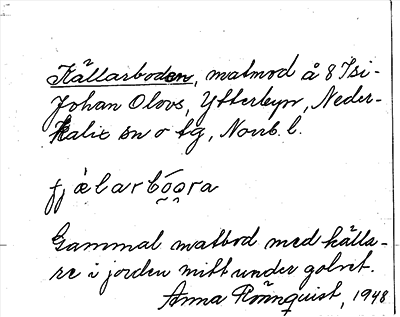 Källarboden, matmod å 8 Isi-
Johan Olovs, Ytterbyn, Neder-
Kalix sn o tg, Norrb. l.
Gammal matbod med källa-
re i jorden mitt under golvet.
Anna Rönnquist, 1948